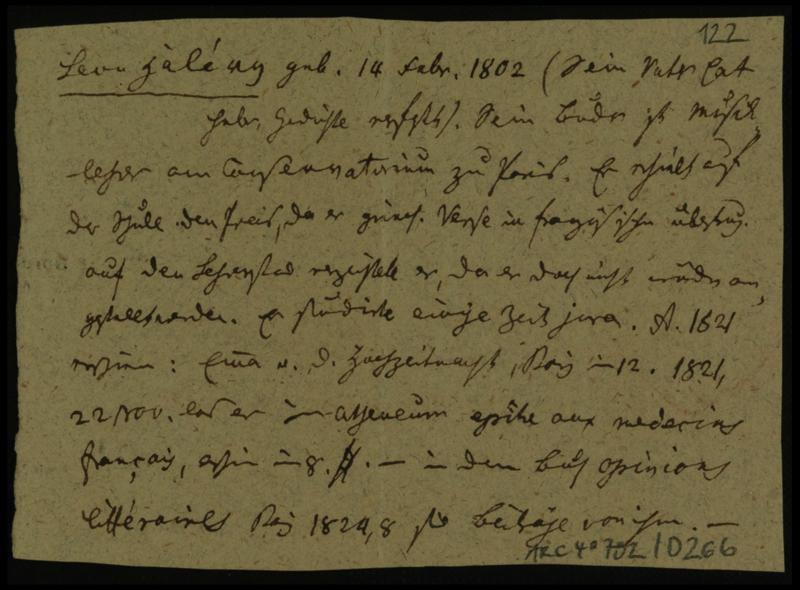 122
Leon Halévy geb. 14 Febr. 1802 (Sein Vater hat
hebr. Gedichte verfaßt). Sein Bruder ist Musik-
lehrer am Conservatorium zu Paris. Er erhielt auf
der Schule den Preis, da er griech. Verse in französische übertrug.
auf den Lehrerstand verzichtete er, da er doch nicht würde an-
gestellt werden. Er studirte einige Zeit jura. A. 1821
erschien: Emma o. d. Hochzeitnacht, Paris in 12. 1821,
22 Nov. las er im atheneum epitre aux medecins
français, erschien in 8. — in dem Buch opinions
littéraires Paris 1824, 8 sind Beiträge von ihm. —
ARC 4° 702 / D266